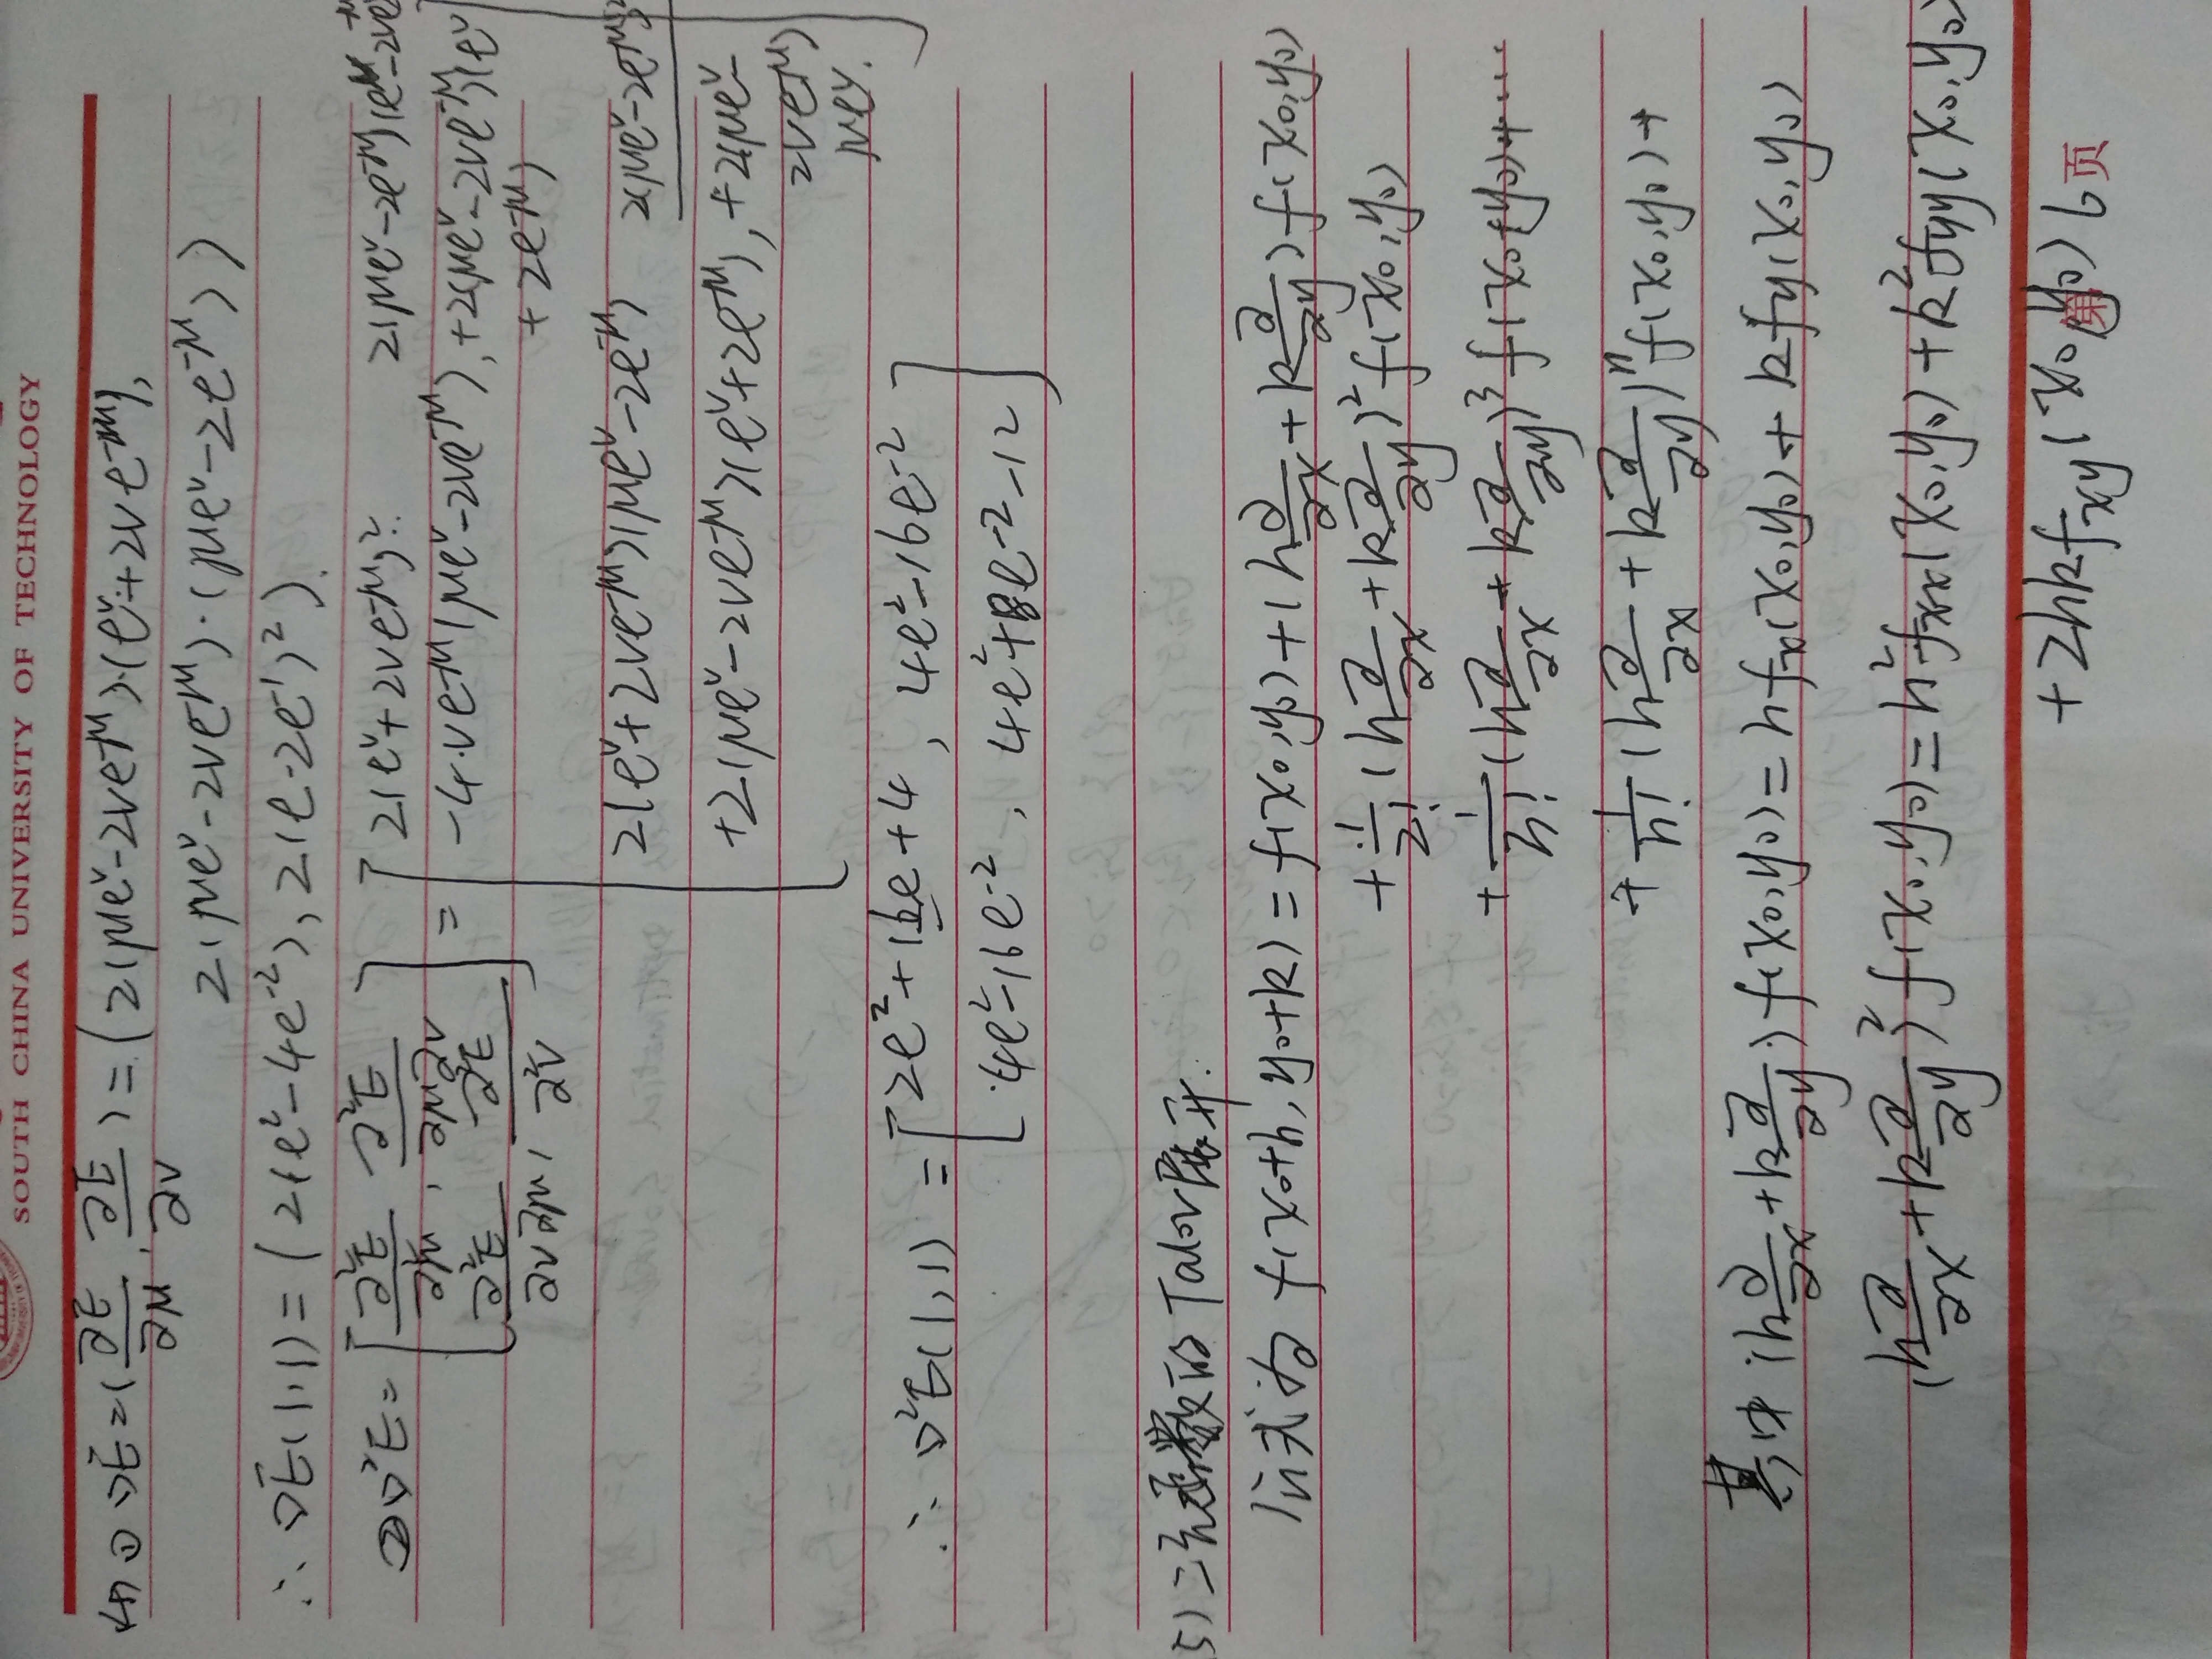 SOUTH CHINA UNIVERSITY OF TECHNOLOGY
(4) ① ▽E=(∂E/∂μ, ∂E/∂v)=(2(μe^v-2ve^-μ)·(e^v+2ve^-μ),
2(μe^v-2ve^-μ)·(μe^v-2e^-μ))
∴ ▽E(1,1)=(2(e²-4e^-2), 2(e-2e^-1)²).
② ▽²E=[∂²E/∂²μ, ∂²E/∂μ∂v = [2(e^v+2ve^-μ)². 2(μe^v-2e^-μ)(e^v-2ve
∂²E/∂v∂μ, ∂²E/∂²v] -4·ve^-μ(μe^v-2ve^-μ), +2(μe^v-2ve^-μ)(e^v
+2e^-μ)
2(e^v+2ve^-μ)(μe^v-2e^-μ) 2(μe^v-2e^-μ)²
+2(μe^v-2ve^-μ)(e^v+2e^-μ), +2(μe^v-
2ve^-μ)
μe^v.]
∴ ▽²E(1,1) = [2e²+16e+4, 4e²-16e^-2
4e²-16e^-2, 4e²+8e^-2-12]
5) 二元函数的Talor展开.
公式为 f(x₀+h, y₀+k)=f(x₀,y₀)+(h∂/∂x+k∂/∂y)f(x₀,y₀)
+1/2!(h∂/∂x+k∂/∂y)²f(x₀,y₀)
+1/n!(h∂/∂x+k∂/∂y)³f(x₀+y₀)+···
+1/n!(h∂/∂x+k∂/∂y)^n f(x₀,y₀)+
其中(h∂/∂x+k∂/∂y)f(x₀,y₀)=hfx(x₀,y₀)+kfy(x₀,y₀)
(h∂/∂x+k∂/∂y)²f(x₀,y₀)=h²fxx(x₀,y₀)+k²fyy(x₀,y₀)
+2hkfxy(x₀,y₀)
第6页